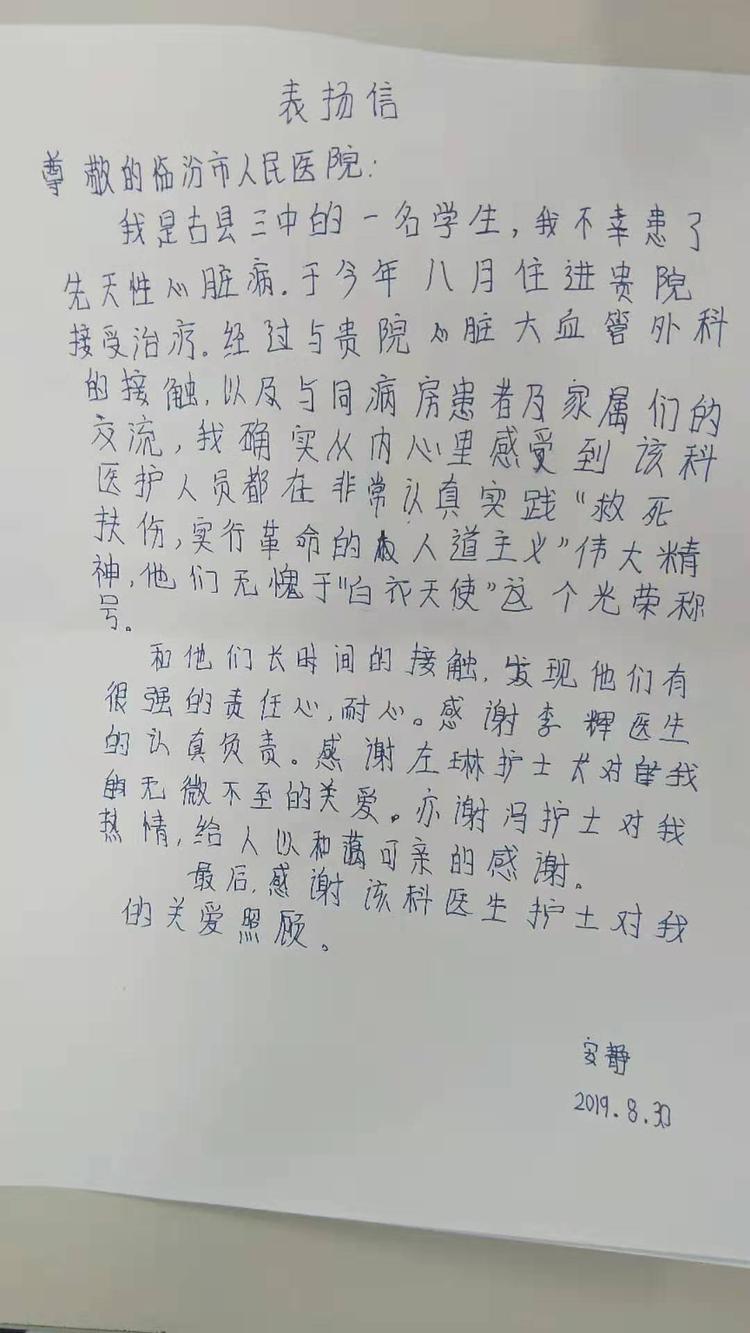 表扬信
尊敬的临汾市人民医院:
我是古县三中的一名学生,我不幸患了
先天性心脏病.于今年八月住进贵院
接受治疗。经过与贵院心脏大血管外科
的接触,以及与同病房患者及家属们的
交流,我确实从内心里感受到该科
医护人员都在非常认真实践“救死
扶伤,实行革命的人道主义”伟大精
神,他们无愧于“白衣天使”这个光荣称
号。
和他们长时间的接触,发现他们有
很强的责任心,耐心。感谢李辉医生
的认真负责。感谢左琳护士对我
的无微不至的关爱。亦谢冯护士对我
热情,给人以和蔼可亲的感谢。
最后,感谢该科医生护士对我
的关爱照顾。
安静
2019.8.30